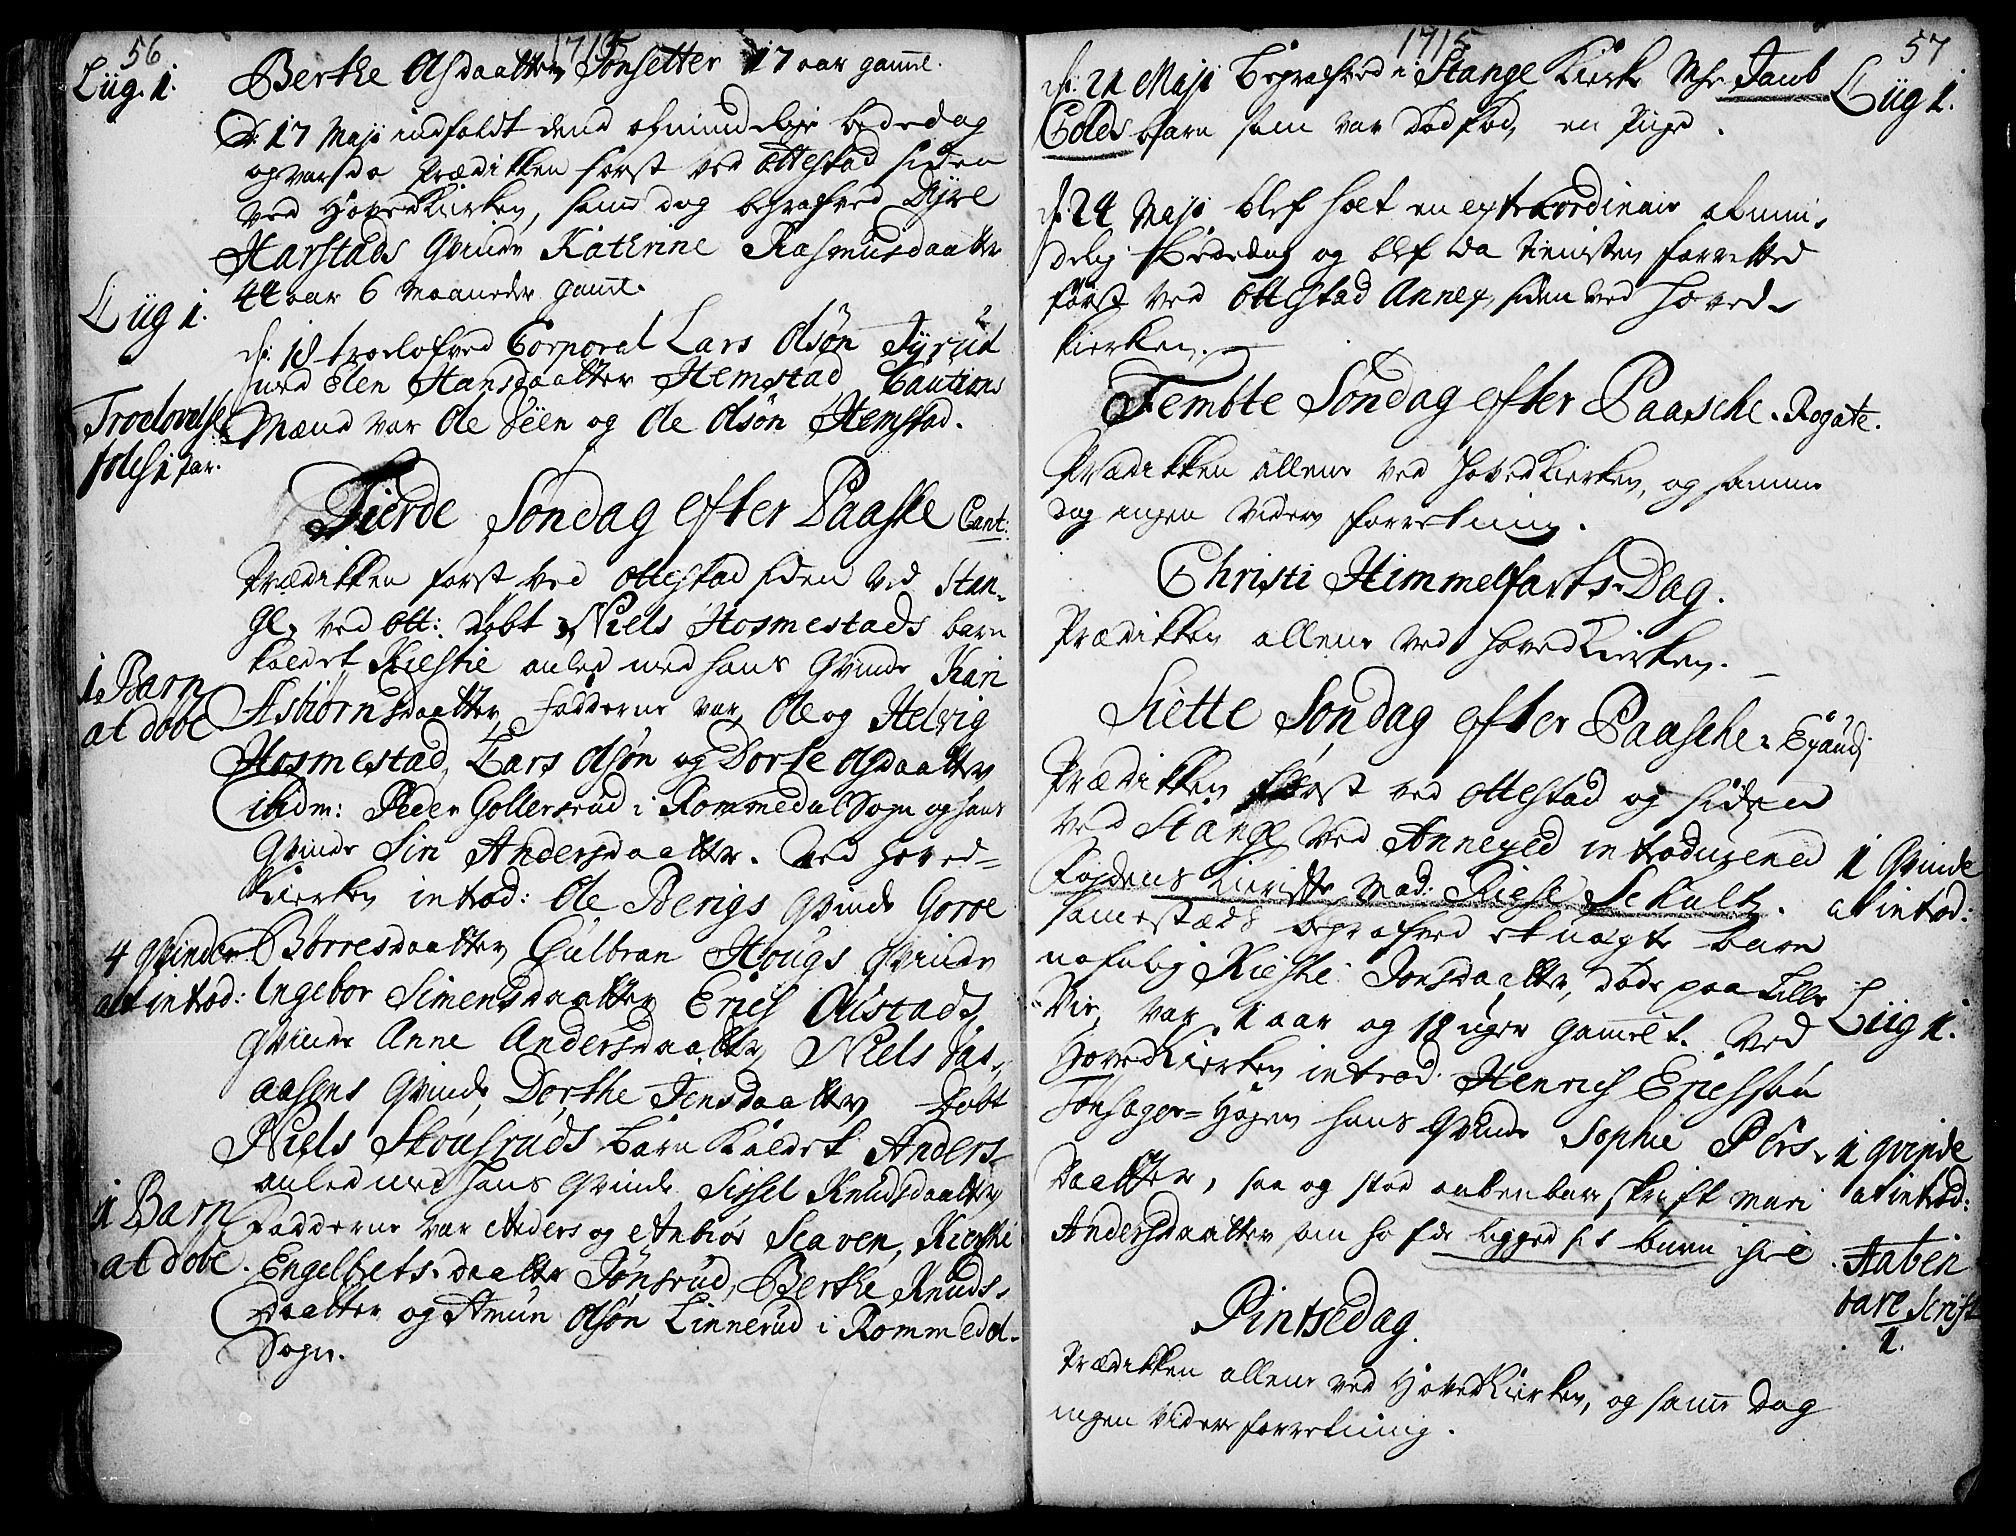 56
1715
Liig. 1.
Berthe Olsdaatter Sønsetter 17 aar gaml.
D: 17 Maji indfaldt dend almindelige bededag
og var da Prædikken først ved Ottestad siden
ved Hovedkirken, samme dag begrafved Dyre
Harstads Qvinde Katerine Rasmusdaatter
44 aar 6 Maaneder gaml.
Liig 1.
d: 18 troelofved Corporal Lars Olsøn Tyrud
med Elen Hansdaatter Hemstad Cautions
Mænd var Ole Séen og Ole Olsøn Hemstad.
Troelovelse
folch 1 par.
Fierde Søndag efter Paaske Cant:
Prædikken først ved Ottestad siden ved Stan-
ge, ved Ott: døbt Niels Hosmestads barn
kaldet Kiestie aulet med hans Qvinde Kari
Asbiørnsdaatter, Fadderne var, Ole og Helvig
Hosmestad, Lars Olsøn og Dorte Olsdaatter
1 Barn
at døbe
ibidm: Peder Gollersrud i Rommedal Sogn og hans
Qvinde Siri Andersdaatter. Ved Hoved-
Kierken introd: Ole Berigs Qvinde Goroe
Børresdaatter, Gulbran Hougs Qvinde
4 Qvinder
at introd:
Ingebor Simensdaatter Erich Olstads
Qvinde Anne Andersdaatter, Niels
aasens Qvinde, Dorthe Jensdaatter, Døbt
Niels Skousruds barn kaldet Anders
aulet med hans Qvinde Sissel Knudsdaatter
1 Barn
at døbe.
Fadderne var Anders og Anbiør Scaven, Kiersti
Engelbets-daatter Jønsrud, Berthe Knuds-
daatter og Amun Olsøn Linnerud i Rommedal-
Sogn.
1715
57
d: 21 Maji begrafved i Stange Kierke Mr. Jacob
Colds barn som var dødfød, en Pige.
Liig 1.
d: 24 Maji blef holt en extraordinair almin-
delig Bededag og blef da tienisten forretted
først ved Ottestad Annex, siden ved Hoved-
kierken.
Fembte Søndag efter Paasche. Rogate.
Prædikken allene ved Hovedkierken, og samme
dag ingen videre forretning.
Christi Himmelfarts-Dag.
Prædikken allene ved Hovedkierken.
Siette Søndag efter Paasche. Exaudj
Prædikken først ved Ottestad og siden
ved Stange, ved Annexed introduzered
Fogdens Kieriste Mad: Kiese Schultz.
1 Qvinde
at introd:
sammestæds begrafved et uægte barn
nafnlig Kieste Jonsdaatter, døde paa Lille
Vie, var 1 aar og 18 uger gammelt. Ved
Liig 1.
Hovedkierken introd. Henrich Erichssøn
Fonsager-Hagen hans Qvinde Sophie Pers-
daatter, saa og stod aabenbare skrift Mari
1 Qvinde
at introd:
Andersdaatter som hafde ligged sit barn ihiel.
Aaben
bare Scrift
1.
Pintsedag.
Prædikken allene ved Hovedkierken, og samme Dag
ingen videre forretning.